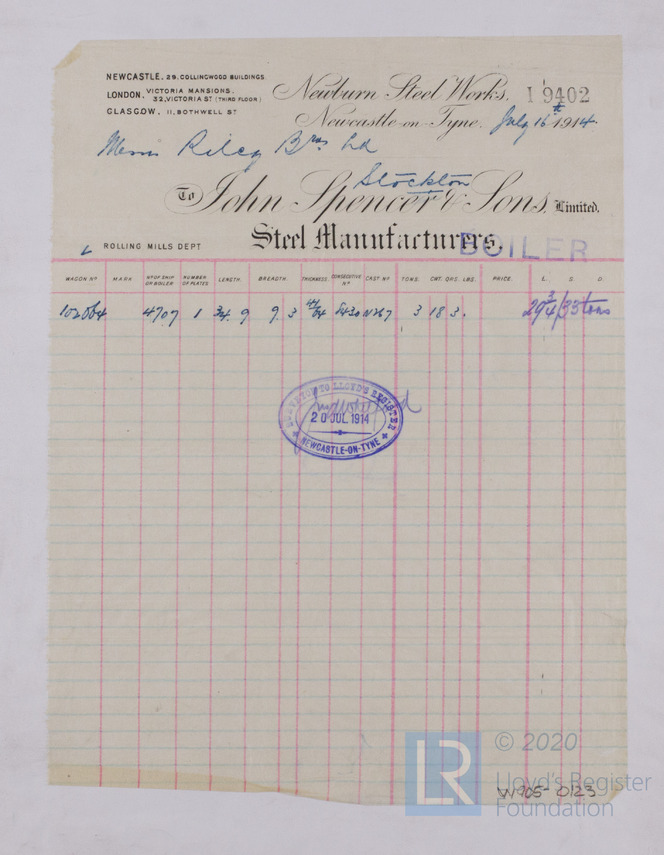 NEWCASTLE. 29. COLLINGWOOD BUILDINGS.
LONDON. VICTORIA MANSIONS.
32, VICTORIA ST (THIRD FLOOR)
GLASGOW. 11, BOTHWELL ST
Newburn Steel Works, 19402
Newcastle-on-Tyne. July 16th 1914.
Messrs Riley Bros Ld
Stockton
To John Spencer & Sons, Limited.
Steel Manufacturers.
BOILER
ROLLING MILLS DEPT
WAGON Nº MARK Nº OF SHIP OR BOILER NUMBER OF PLATES LENGTH. BREADTH. THICKNESS. CONSECUTIVE Nº CAST Nº TONS. CWT. QRS. LBS. PRICE. L. S. D.
4707 1 34. 9 9. 3 3 18 3. 29 3/4/33 tons
SURVEYOR TO LLOYD'S REGISTER
20 JUL 1914
NEWCASTLE-ON-TYNE
LR © 2020
Lloyd's Register
Foundation
W905-0123